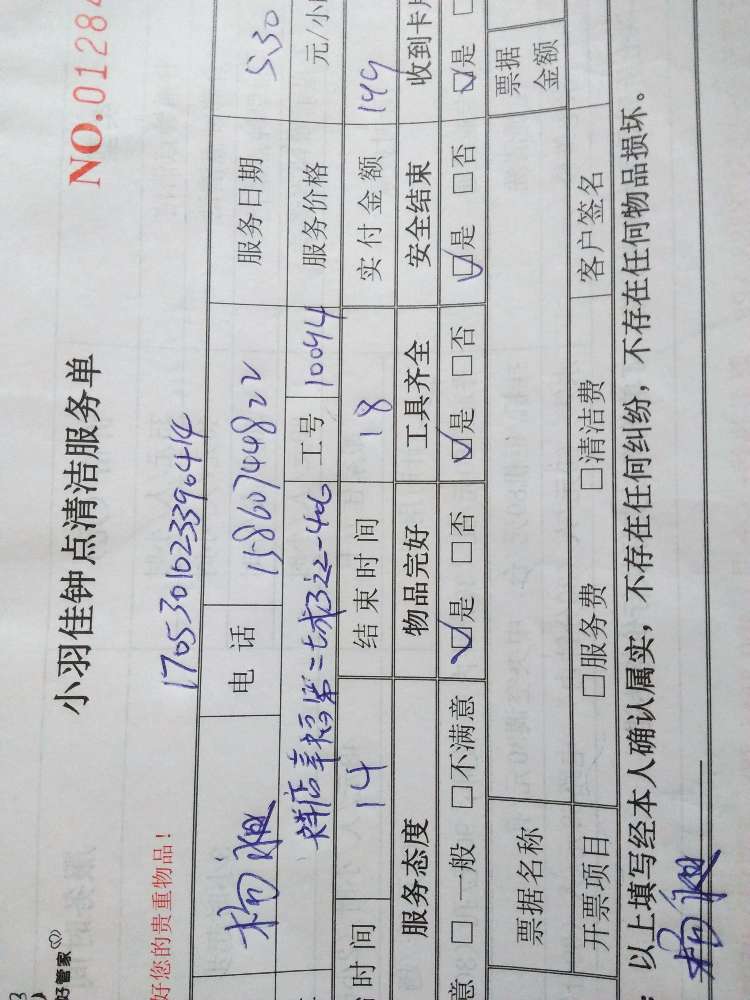 好管家
小羽佳钟点清洁服务单
NO.01284
好您的贵重物品！
1705301023390414
电 话 15860744822 服务日期 5.30
工号 10094 服务价格 元/小
时间 14 结束时间 18 实付金额 199
服务态度 物品完好 工具齐全 安全结束 收到卡
意 □ 一般 □不满意 ☑是 □否 ☑是 □否 ☑是 □否 ☑是
票据名称 票据金额
开票项目 □服务费 □清洁费 客户签名
以上填写经本人确认属实，不存在任何纠纷，不存在任何物品损坏。